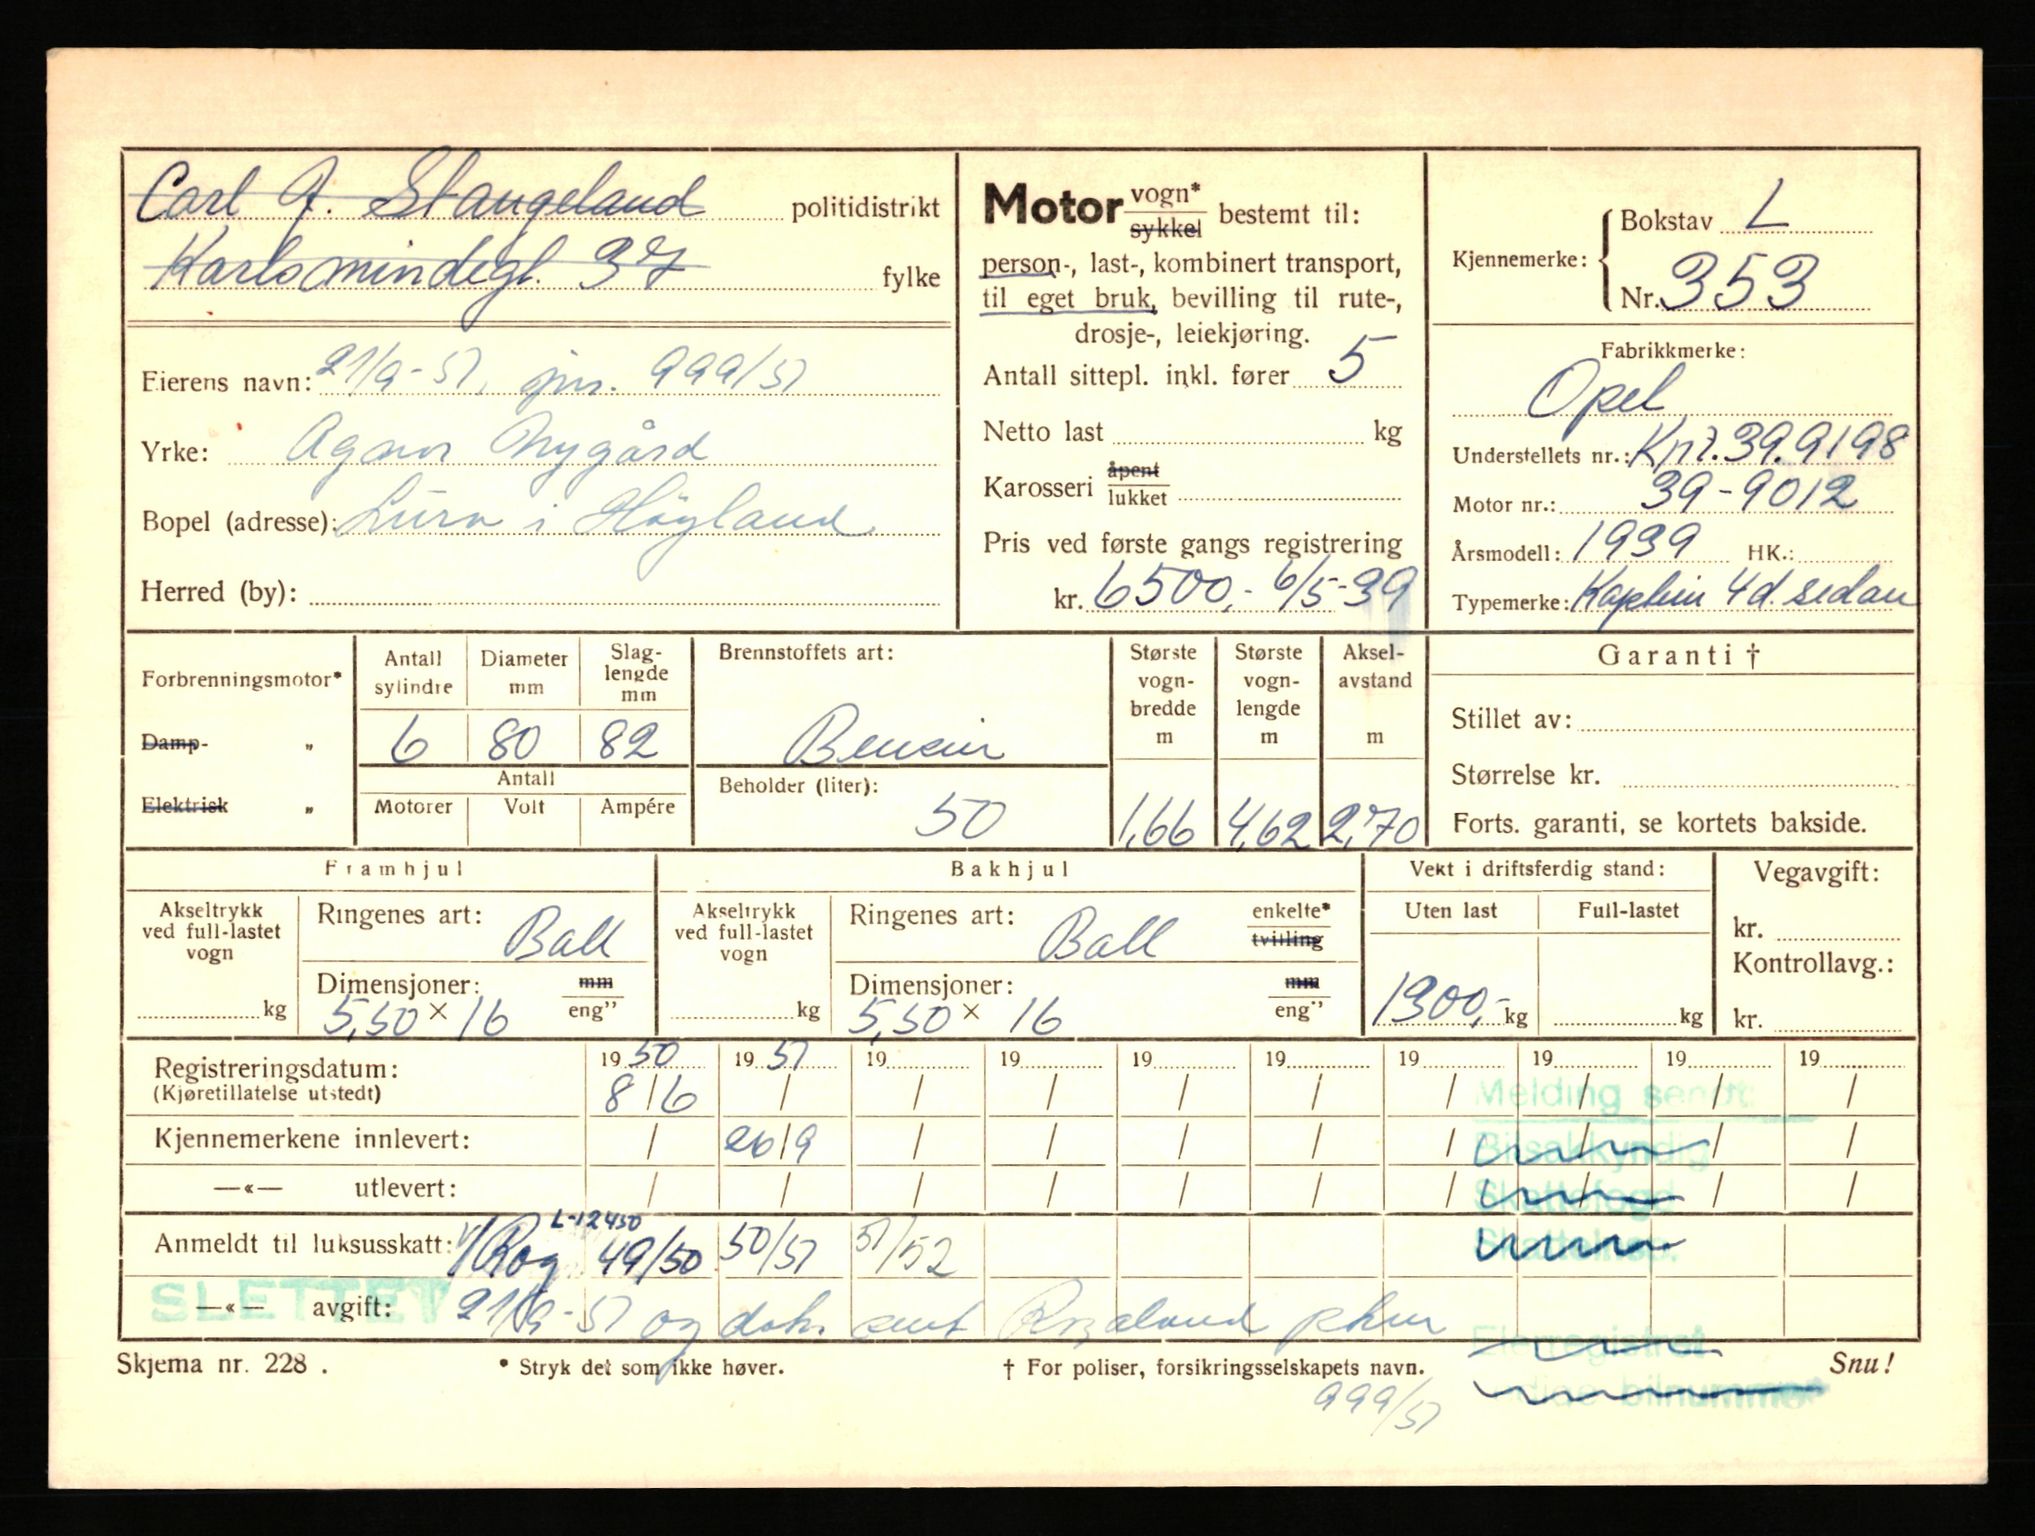 Carl J. Stangeland politidistrikt
Karlsmindegt. 37 fylke
Eierens navn: 21/9-51, jnr. 999/51
Yrke: Agnar Nygård
Bopel (adresse): Lura i Høyland
Herred (by):
Motor vogn* sykkel bestemt til:
person-, last-, kombinert transport,
til eget bruk, bevilling til rute-,
drosje-, leiekjøring.
Antall sittepl. inkl. fører 5
Netto last kg
Karosseri åpent lukket
Pris ved første gangs registrering
kr. 6500,- 6/5-39
Kjennemerke: Bokstav L
Nr. 353
Fabrikkmerke:
Opel
Understellets nr.: Kp2.39.9198
Motor nr.: 39-9012
Årsmodell: 1939 HK.:
Typemerke: Kaptein 4d. sedan
Forbrenningsmotor*
Damp- „
Elektrisk „
Antall sylindre Diameter mm Slaglengde mm
6 80 82
Antall
Motorer Volt Ampére
Brennstoffets art:
Bensin
Beholder (liter):
50
Største vognbredde m
1,66
Største vognlengde m
4,62
Akselavstand m
2,70
Garanti †
Stillet av:
Størrelse kr.
Forts. garanti, se kortets bakside.
Framhjul
Akseltrykk ved full-lastet vogn
kg
Ringenes art: Ball
Dimensjoner: mm
5,50 x 16 eng”
Bakhjul
Akseltrykk ved full-lastet vogn
kg
Ringenes art: Ball enkelte* tvilling
Dimensjoner: mm
5,50 x 16 eng”
Vekt i driftsferdig stand:
Uten last Full-lastet
1300,- kg kg
Vegavgift:
kr.
Kontrollavg.:
kr.
Registreringsdatum: 19 50 19 51 19 19 19 19 19 19 19 19
(Kjøretillatelse utstedt) 8/6 / / / / / / / / /
Melding sendt:
Kjennemerkene innlevert: / 26/9 / / / / / / / /
Bilsakkyndig
—«— utlevert: / / / / / / / / / /
Skattefogd
L-12450
Anmeldt til luksusskatt: V/Rog 49/50 50/51 51/52
Skatteinsp.
SLETTET
—«— avgift: 21/9-51 og dok. sent Rogaland pkm
Eierregistret
Skjema nr. 228. * Stryk det som ikke høver. † For poliser, forsikringsselskapets navn. Snu!
999/51
bilnummer